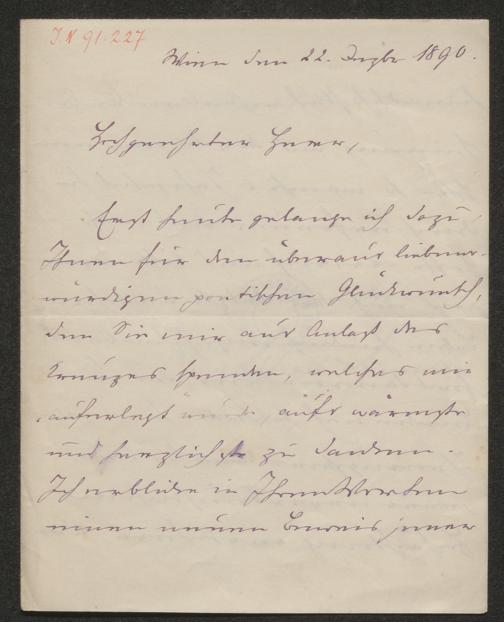 J.N 91.227
Wien den 22. Dezbr 1890.
Hochgeehrter Herr,
Erst heute gelange ich dazu,
Ihnen für den überaus liebens-
würdigen poetischen Glückwunsch,
den Sie mir aus Anlaß des
Kreuzes spenden, welches mir
"auferlegt" wurde, aufs wärmste
und herzlichste zu danken.
Ich erblicke in Ihren Worten
einen neuen Beweis jener